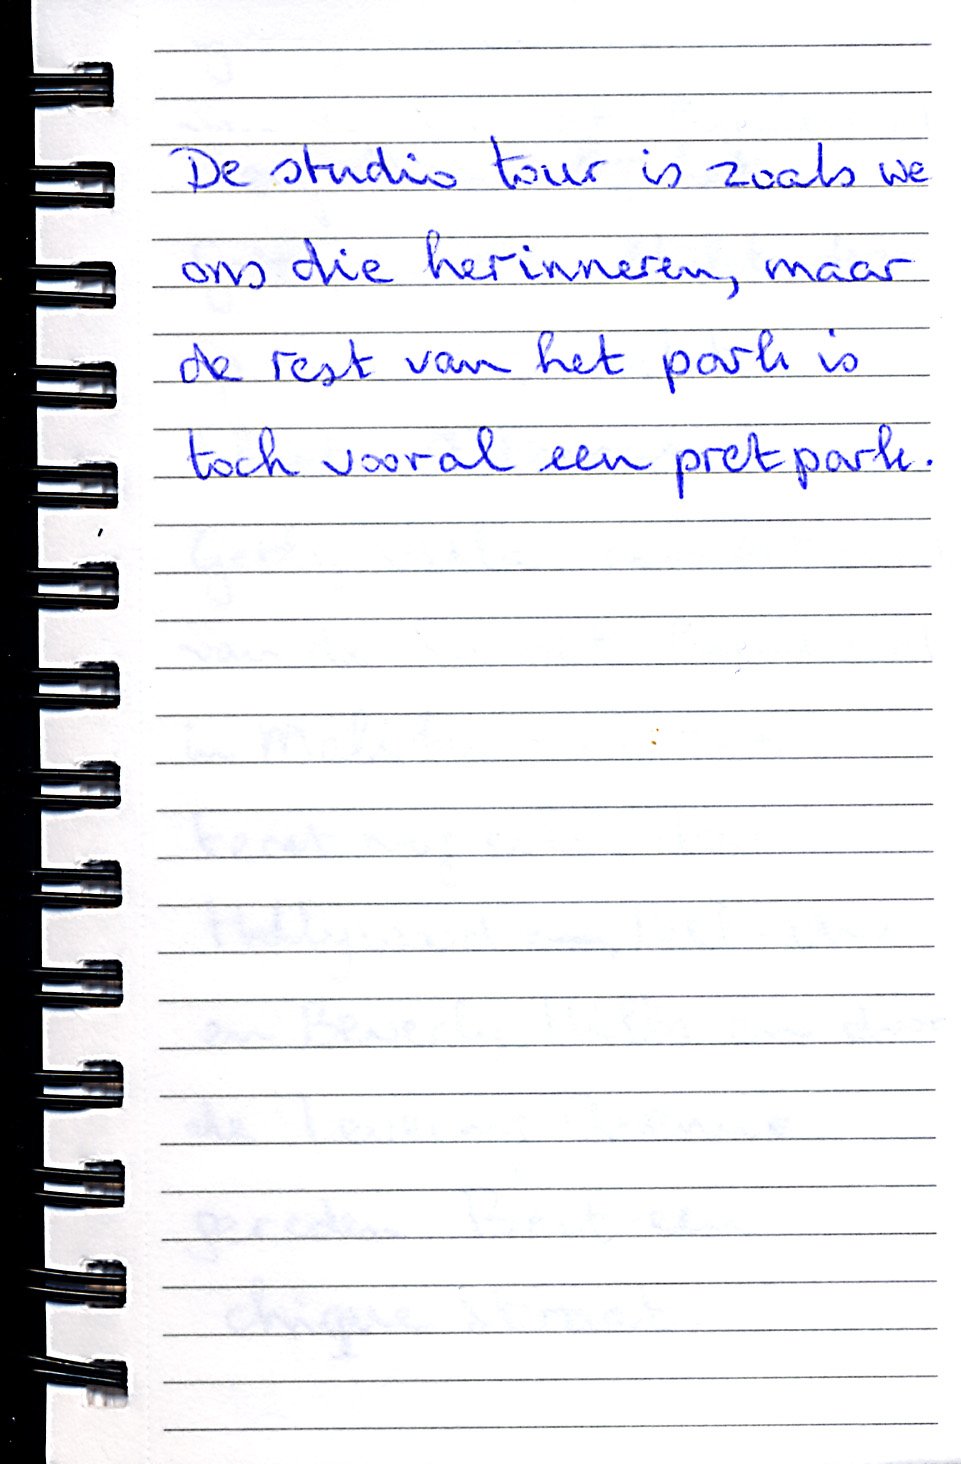 De studio tour is zoals we
ons die herinneren, maar
de rest van het park is
toch vooral een pretpark.